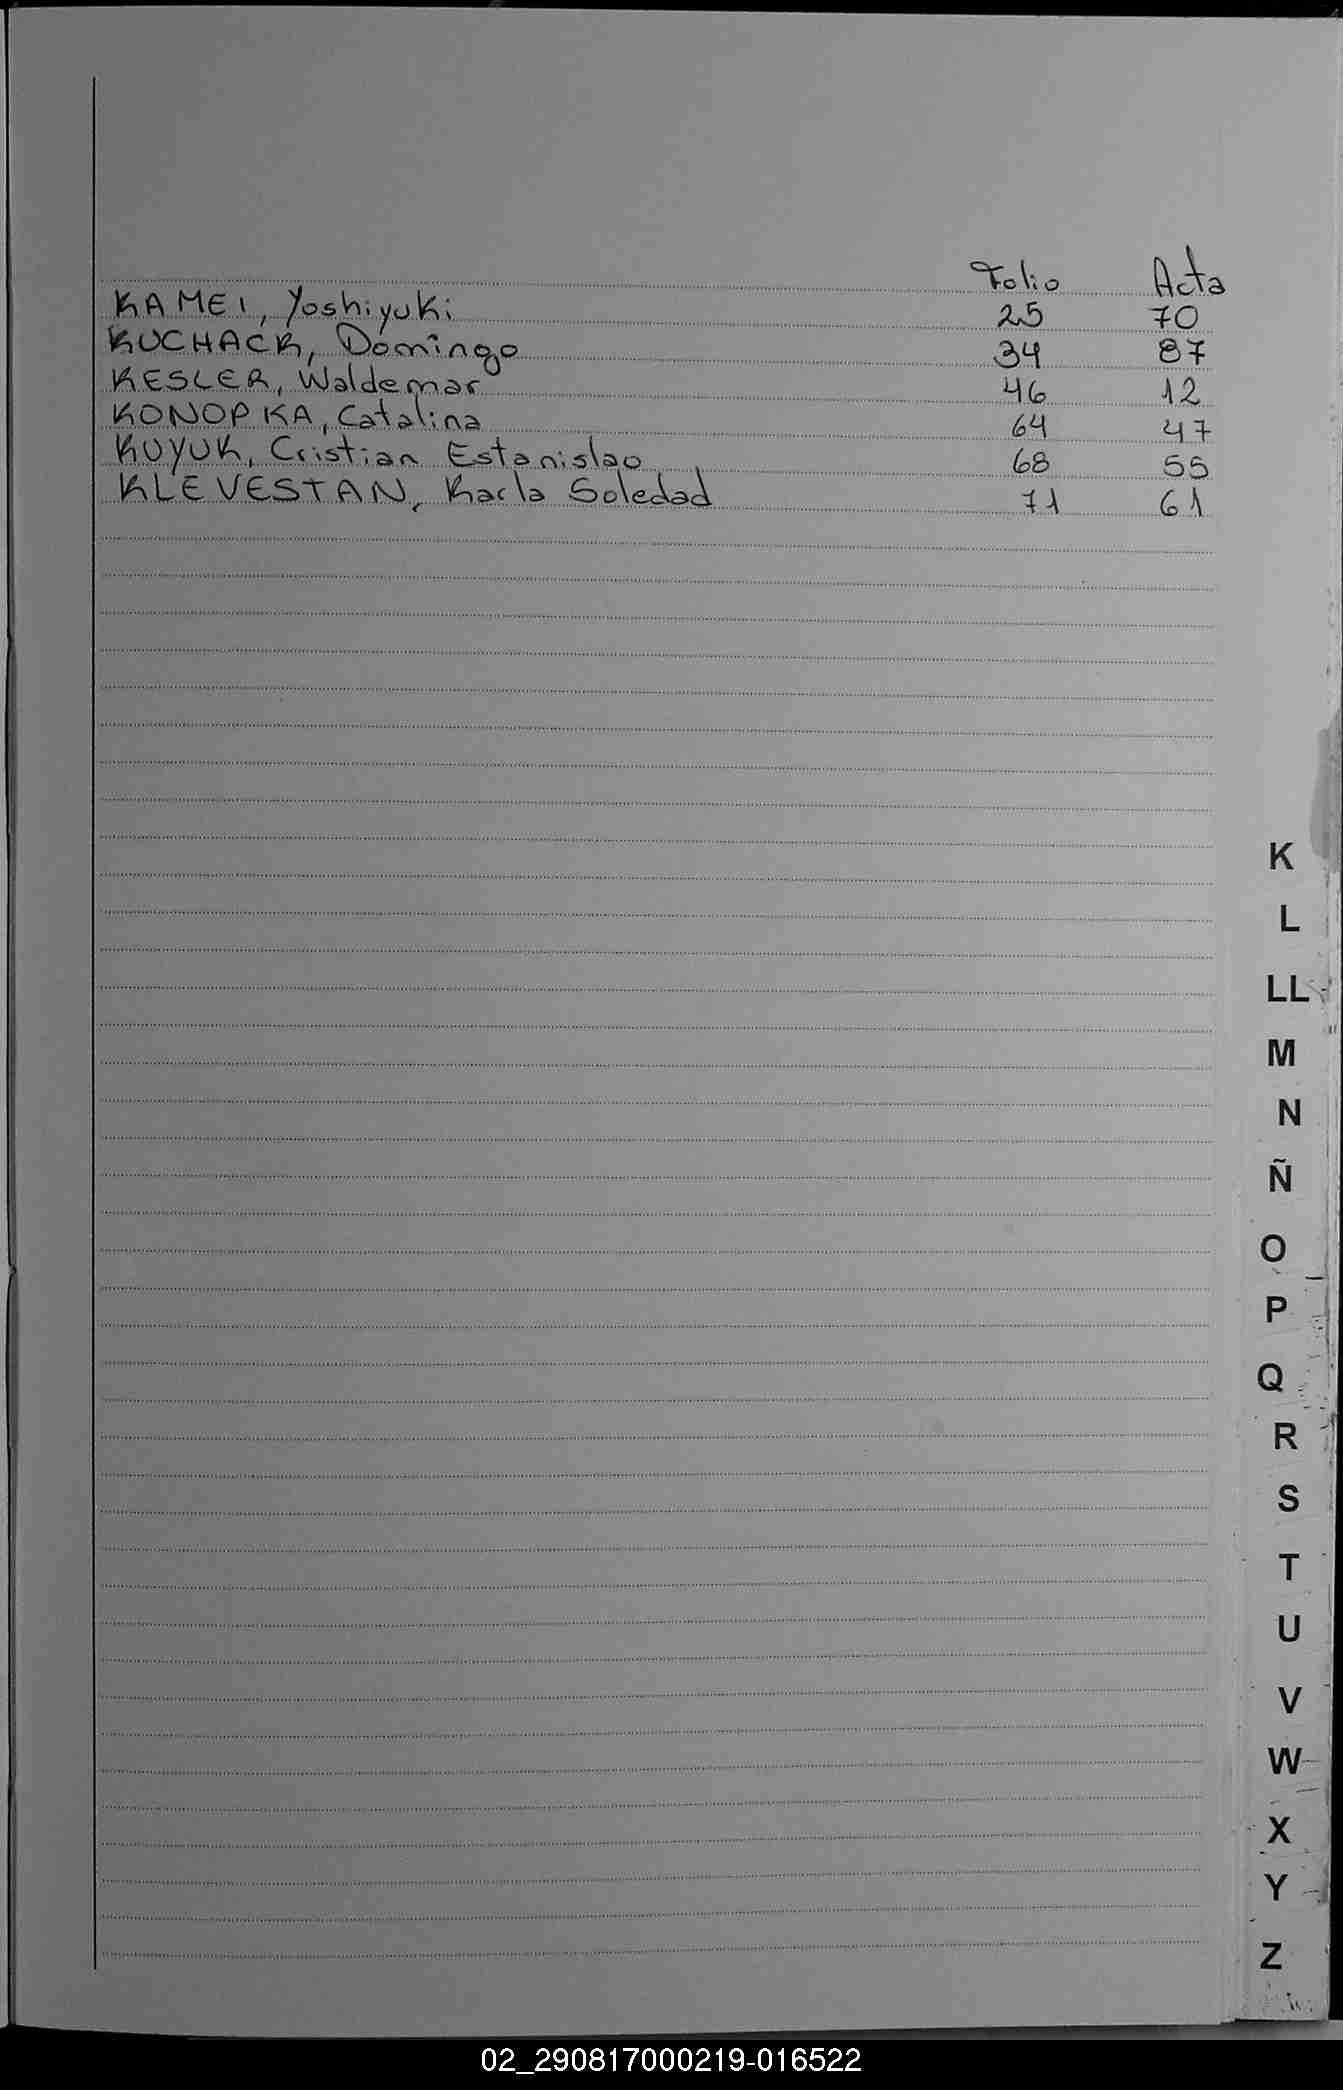 Folio Acta
KAMEI, Yoshiyuki 25 70
KUCHACK, Domingo 34 87
KESLER, Waldemar 46 12
KONOPKA, Catalina 64 47
KUYUK, Cristian Estanislao 68 55
KLEVESTAN, Karla Soledad 71 61
K
L
LL
M
N
Ñ
O
P
Q
R
S
T
U
V
W
X
Y
Z
02_290817000219-016522